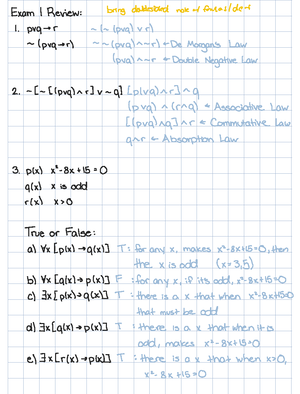 Exam 1 Review:
1. pvq→r
~(pvq→r)
~(~(pvq)vr)
~~(pvq)^~r ← De Morgan's Law
(pvq)^~r ← Double Negative Law
2. ~[~[(pvq)^r]v~q]
[p(vq)^r]^q
(pvq)^(r^q) ← Associative Law
[(pvq)^q]^r ← Commutative Law
q^r ← Absorption Law
3. p(x) x²-8x+15=0
q(x) x is odd
r(x) x>0
True or False:
a) ∀x[p(x)→q(x)] T: for any x, makes x²-8x+15=0, then
the x is odd (x=3,5)
b) ∀x[q(x)→p(x)] F: for any x, if its odd, x²-8x+15=0
c) ∃x[p(x)→q(x)] T: there is a x that when x²-8x+15=0
that must be odd
d) ∃x[q(x)→p(x)] T: there is a x that when it is
odd, makes x²-8x+15=0
e) ∃x[r(x)→p(x)] T: there is a x that when x>0,
x²-8x+15=0